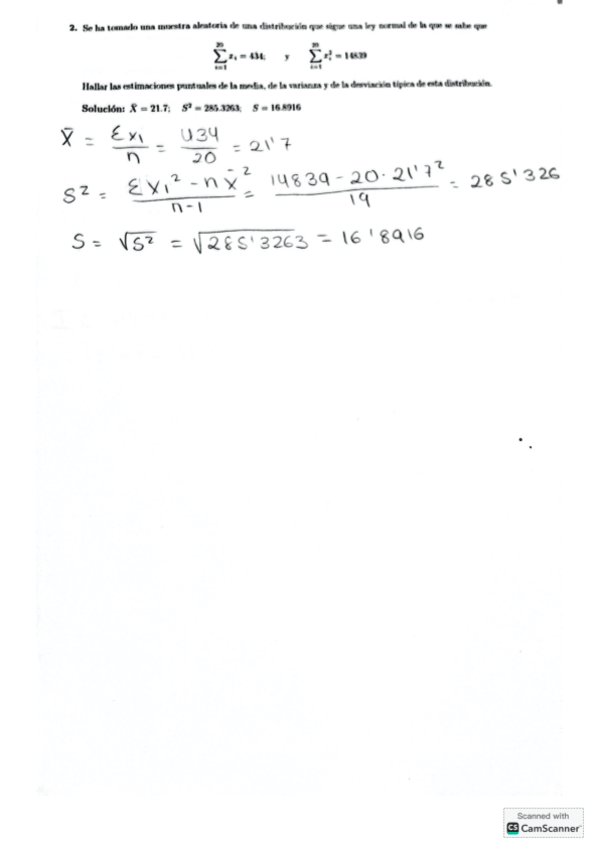 2. Se ha tomado una muestra aleatoria de una distribución que sigue una ley normal de la que se sabe que
20∑i=1 xᵢ = 434; y 20∑i=1 xᵢ² = 14839
Hallar las estimaciones puntuales de la media, de la varianza y de la desviación típica de esta distribución.
Solución: X̄ = 21.7; S² = 285.3263; S = 16.8916
X̄ = Σx₁/n = 434/20 = 21'7
S² = (Σx₁² - nx̄²)/(n-1) = (14839 - 20·21'7²)/19 = 285'326
S = √S² = √285'3263 = 16'8916
Scanned with
CS CamScanner